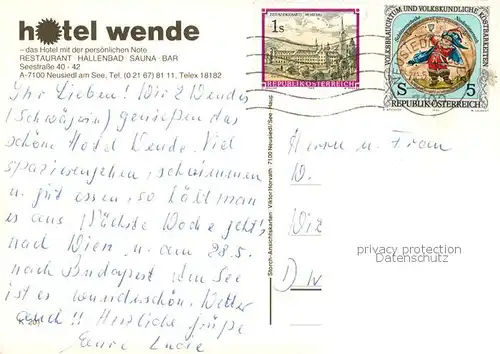 hotel wende
– das Hotel mit der persönlichen Note
RESTAURANT · HALLENBAD · SAUNA · BAR
Seestraße 40 - 42
A-7100 Neusiedl am See, Tel. (0 21 67) 81 11, Telex 18182
Ihr Lieben! Wir 2 Wender
(Schwägerin) genießen das
schöne Hotel Wende. Viel
spazierengehen, schwimmen
u. gut essen, so läßt man
es aus. Nächste Woche geht's
nach Wien u. am 28.5.
nach Budapest. Am See
ist es wunderschön. Wetter
auch!! Herzliche Grüße
Eure
K 201
Storch-Ansichtskarten Viktor Horvath 7100 Neusiedl/See
1s
REPUBLIK ÖSTERREICH
VOLKSBRAUCHTUM UND VOLKSKUNDLICHE KOSTBARKEITEN
S 5
REPUBLIK ÖSTERREICH
Herrn u. Frau
W.
D
privacy protection
DAMALS.COM